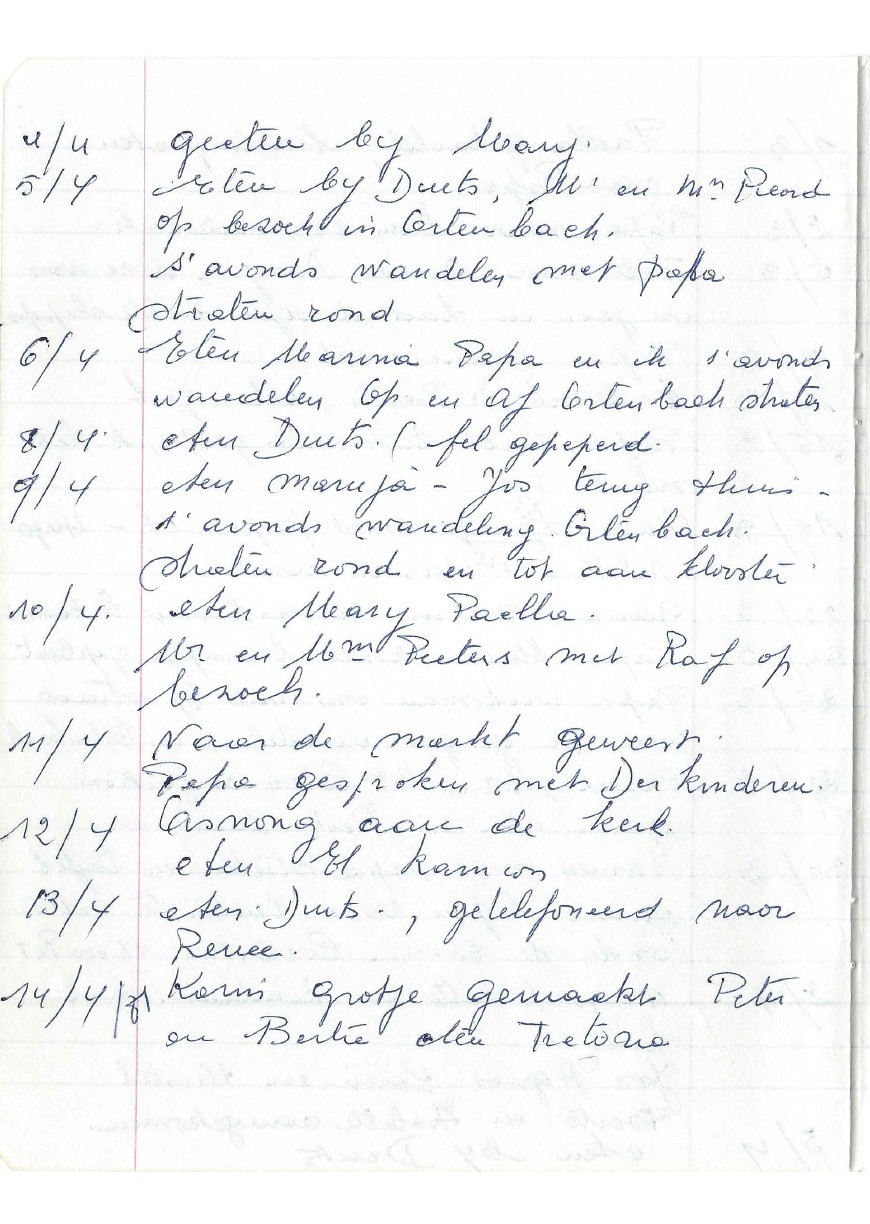 4/4 geeten by Mary.
5/4 Eten by Duits, Mr en Mm Picord
op bezoch in Ortenbach.
s'avonds wandelen met papa
straten rond
6/4 Eten Marina Papa en ik s'avonds
wandelen Op en Af Ortenbach straten
8/4. eten Duits ( fel gepeperd.
9/4 eten maruja - Jos terug thuis -
s'avonds wandeling Ortenbach.
straten rond en tot aan klooster
10/4. eten Mary Paella.
Mr en Mm Peeters met Raf op
bezoch.
11/4 Naar de markt geweest.
Papa gesproken met Der kinderen.
12/4 aan de kerk.
eten El
13/4 eten Duits., getelefoneerd naar
Renee.
14/4 grotje gemaakt Peter
en Bertie eten